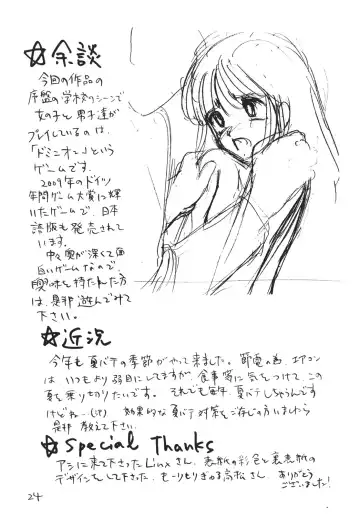 ☆余談
今回の作品の
序盤の学校のシーンで
女の子と男子達が
プレイしているのは、
「ドミニオン」という
ゲームです。
2009年のドイツ
年間ゲーム大賞に輝
いたゲームで、日本
語版も発売されて
います。
中々奥が深くて面
白いゲームなので、
興味を持たれた方
は、是非遊んでみて
下さい。
☆近況
今年も夏バテの季節がやって来ました。節電の為、エアコン
はいつもより弱目にしてますが、食事等に気をつけてこの
夏を乗り切りたいです。それでも毎年、夏バテしちゃうんです
けどね…(汗) 効果的な夏バテ対策をご存じの方いましたら
是非教えて下さい。
☆Special Thanks
アシに来て下さったLinxさん、表紙の彩色と裏表紙の
デザインをして下さった、もーりもりぎゅる高松さん、ありがとう
ございました!
24